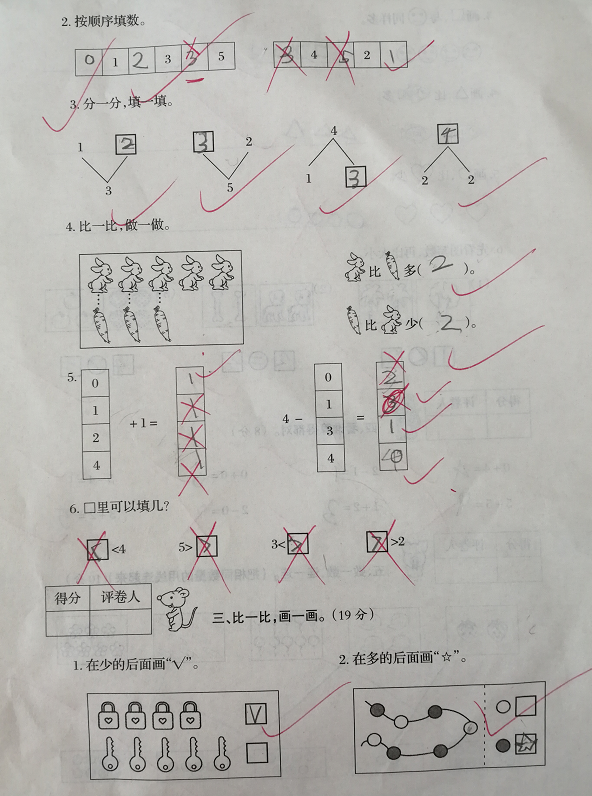 2. 按顺序填数。
0 1 2 3 3 5 3 4 5 2 1
3. 分一分,填一填。
1 2 3 2 4 4
3 5 1 3 2 2
4. 比一比,做一做。
比 多( 2 )。
比 少( 2 )。
5.
0 1 0 2
1 1 1 3
+1= 4− =
2 1 3 1
4 1 4 0
6. □里可以填几?
<4 5> 3< >2
得分 评卷人
三、比一比,画一画。(19 分)
1. 在少的后面画“√”。 2. 在多的后面画“☆”。
√
☆